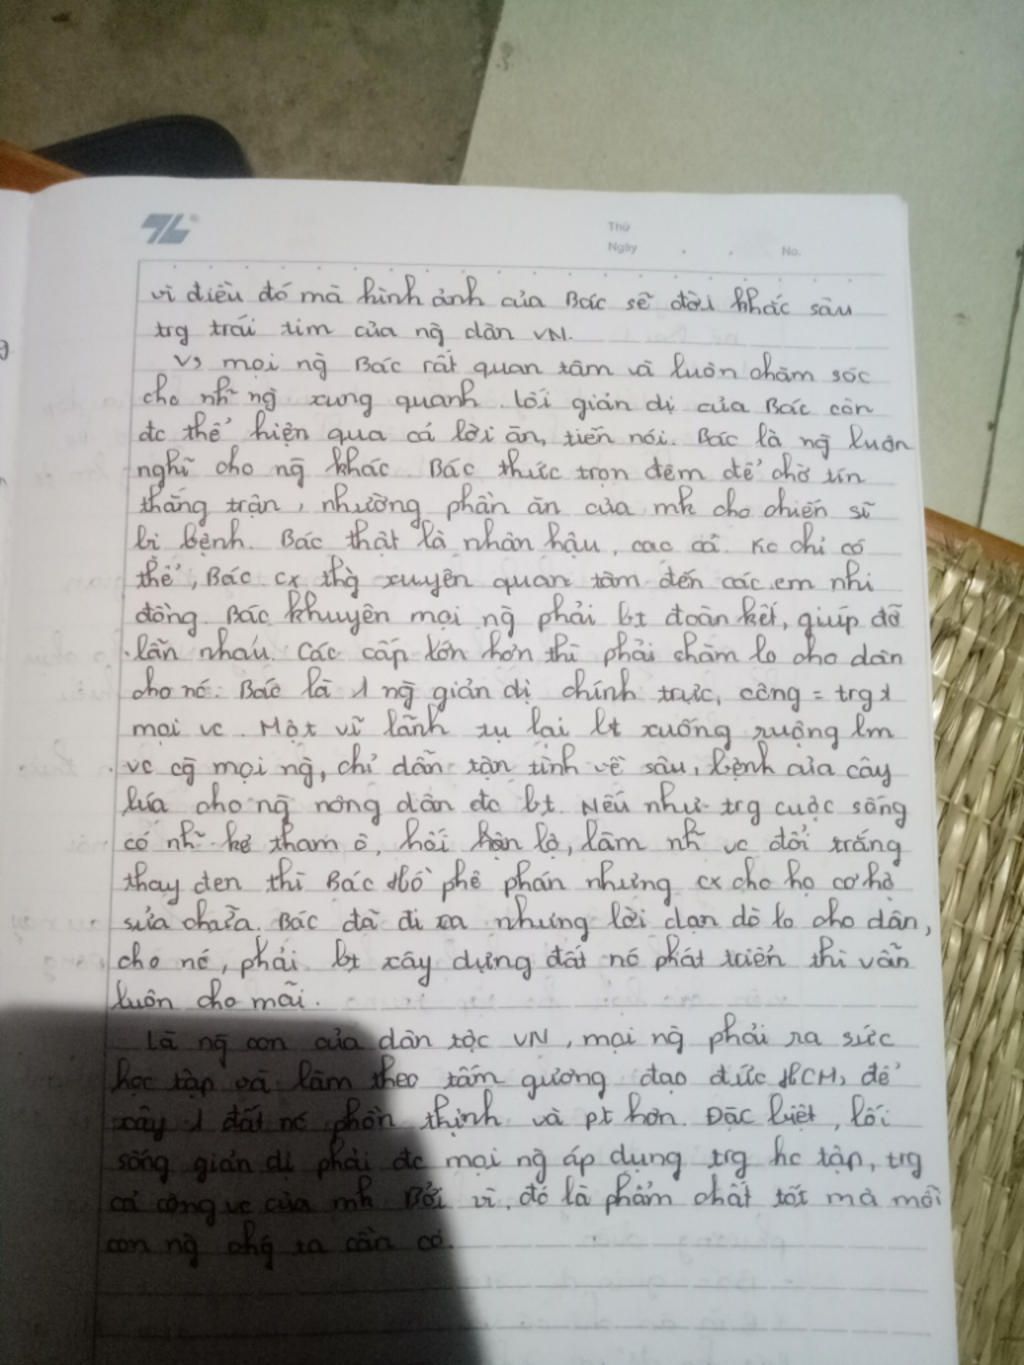 Thứ
Ngày . . No.
vì điều đó mà hình ảnh của Bác sẽ đời khắc sâu
trg trái tim của ng̃ dân VN.
Vs mọi ng̃ Bác rất quan tâm và luôn chăm sóc
cho nh~ ng̃ xung quanh. lối giản dị của Bác còn
đc thể hiện qua cả lời ăn, tiến nói. Bác là ng̃ luôn
nghĩ cho ng̃ khác. Bác thức trọn đêm để chờ tin
thắng trận, nhường phần ăn của mk cho chiến sĩ
bị bệnh. Bác thật là nhân hậu, cao cả. Kc chỉ có
thế, Bác cx thg̀ xuyên quan tâm đến các em nhi
đồng. Bác khuyên mọi ng̃ phải bt đoàn kết, giúp đỡ
lẫn nhau. Các cấp lớn hơn thì phải chăm lo cho dân
cho nc. Bác là 1 ng̃ giản dị chính trực, công = trg
mọi vc. Một vĩ lãnh tụ lại bt xuống ruộng lm
vc cg̃ mọi ng̃, chỉ dẫn tận tình về sâu, bệnh của cây
lúa cho ng̃ nông dân đc bt. Nếu như trg cuộc sống
có nh~ kẻ tham ô, hối lộ, làm nh~ vc đổi trắng
thay đen thì Bác Hồ phê phán nhưng cx cho họ cơ hộ
sửa chữa. Bác đã đi xa nhưng lời dạn dò lo cho dân,
cho nc, phải bt xây dựng đất nc phát triển thì vẫn
luôn cho mãi.
Là ng̃ con của dân tộc VN, mọi ng̃ phải ra sức
học tập và làm theo tấm gương đạo đức HCM, để
xây 1 đất nc phồn thịnh và pt hơn. Đặc biệt, lối
sống giản dị phải đc mọi ng̃ áp dụng trg hc tập, trg
cả công vc của mk. Bởi vì, đó là phẩm chất tốt mà mỗi
con ng̃ chg ta cần có.